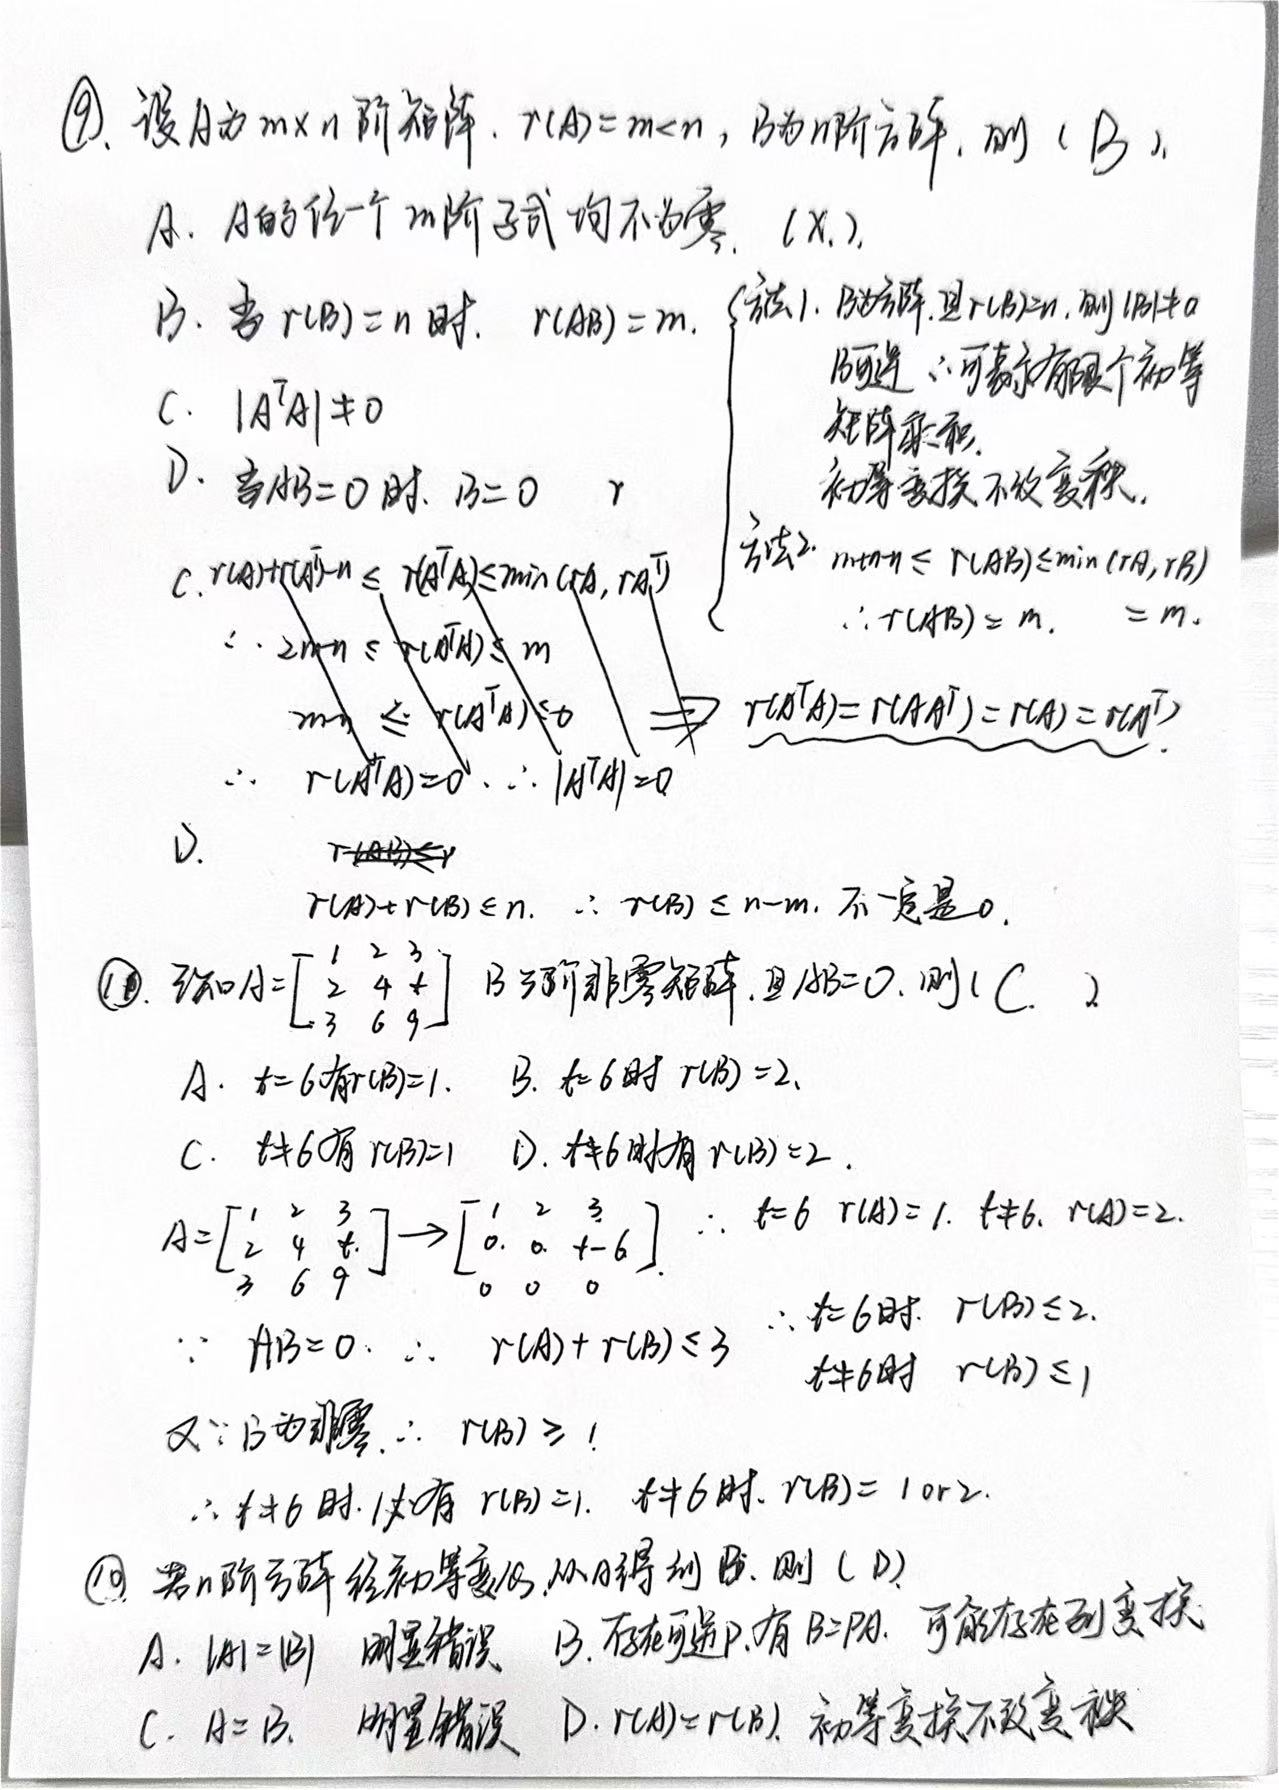 ⑨. 设A为m×n阶矩阵. r(A)=m<n, B为n阶方阵. 则 ( B ).
A. A的任一个m阶子式均不为零. (×.).
B. 当r(B)=n时. r(AB)=m.
C. |AᵀA|≠0
D. 当AB=0时. B=0 r
方法1. B为方阵.且r(B)=n. 则|B|≠0
B可逆 ∴可表示有限个初等
矩阵乘积.
初等变换不改变秩.
方法2. m+n-n ≤ r(AB) ≤ min(rA, rB)
∴ r(AB) = m. = m.
C. r(A)+r(Aᵀ)-n ≤ r(AᵀA) ≤ min(rA, rAᵀ)
∴ 2m-n ≤ r(AᵀA) ≤ m
m-n ≤ r(AᵀA) ≤ 0 ⇒ r(AᵀA)=r(AAᵀ)=r(A)=r(Aᵀ).
∴ r(AᵀA)=0. ∴ |AᵀA|=0
D. r(AB)≤r
r(A)+r(B)≤n. ∴ r(B)≤n-m. 不一定是0.
已知A=[1 2 3
2 4 t
3 6 9] B 3阶非零矩阵.且AB=0. 则( C. )
A. t=6有r(B)=1. B. t=6时 r(B)=2.
C. t≠6有r(B)=1 D. t≠6时有r(B)=2.
A=[1 2 3
2 4 t.
3 6 9] → [1 2 3
0. 0. t-6
0 0 0]. ∴ t=6 r(A)=1. t≠6. r(A)=2.
∵ AB=0. ∴ r(A)+r(B)≤3
∴ t=6时. r(B)≤2.
t≠6时 r(B)≤1
又∵B为非零. ∴ r(B)≥1
∴ t≠6时. 必有 r(B)=1. t≠6时. r(B)= 1 or 2.
⑩ 若n阶方阵经初等变化.从A得到B. 则 ( D )
A. |A|=|B| 明显错误 B. 存在可逆P.有B=PA. 可能存在列变换
C. A=B. 明显错误 D. r(A)=r(B). 初等变换不改变秩